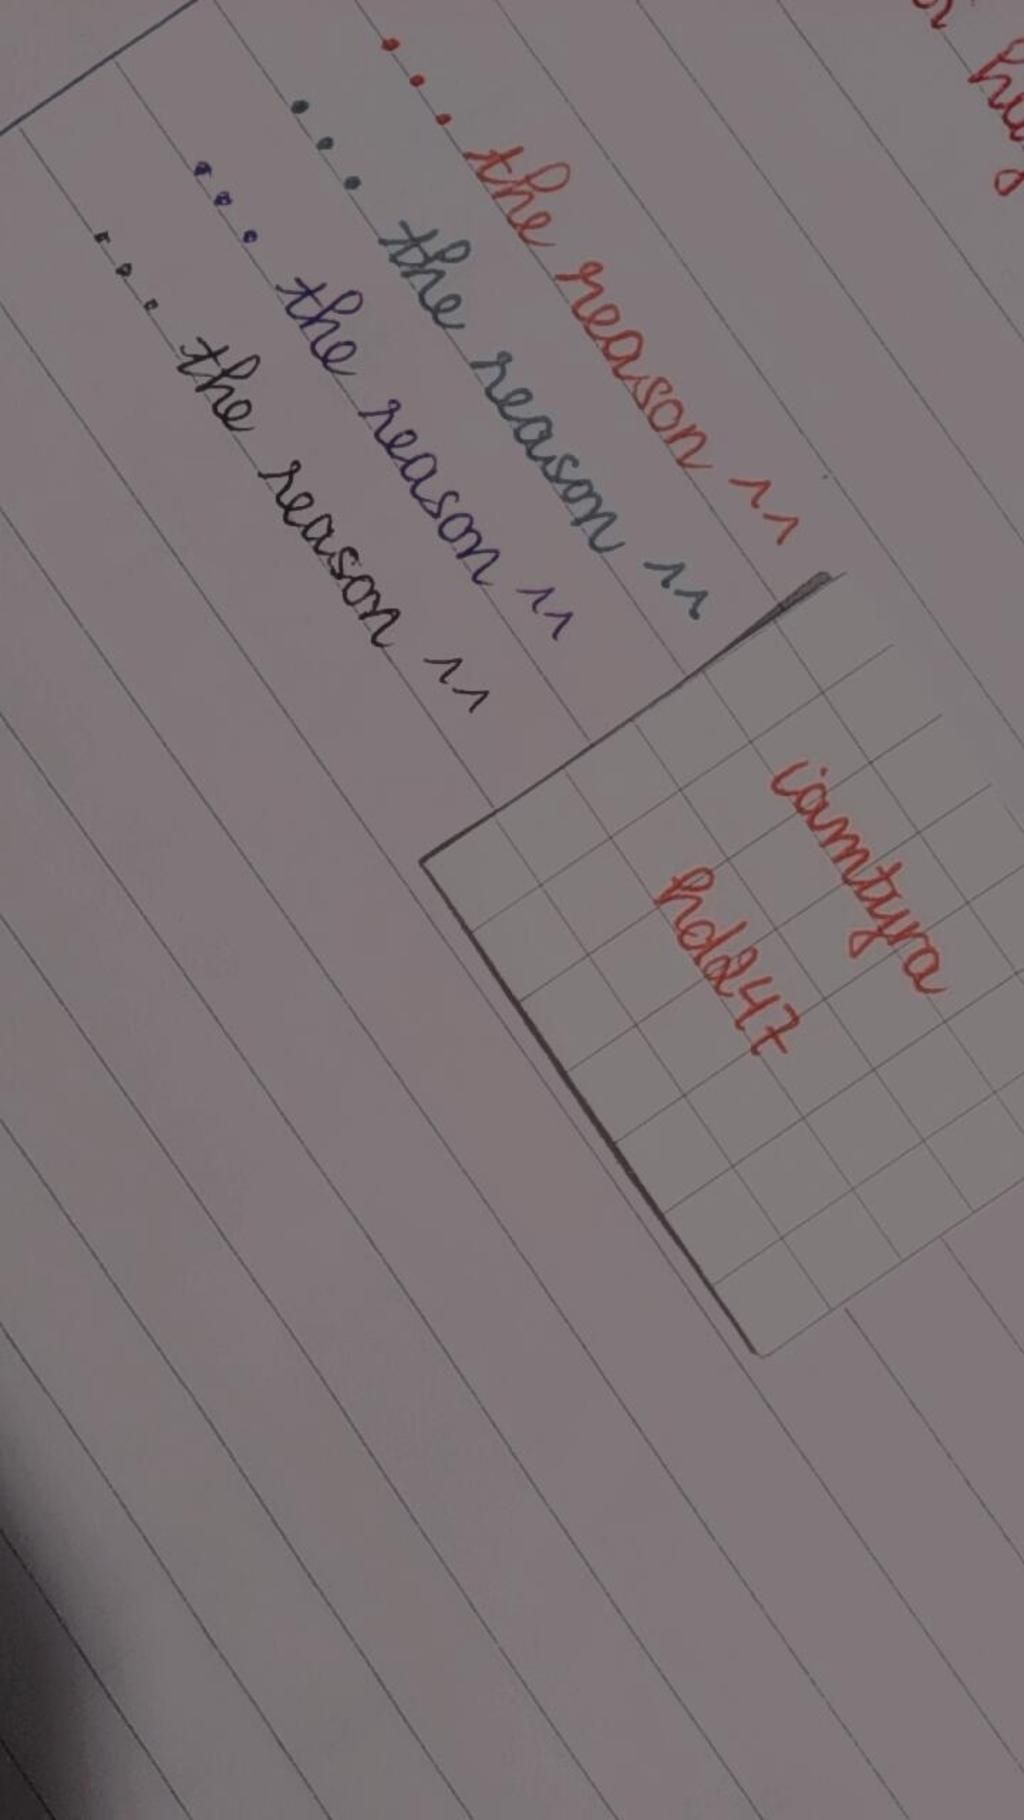 ... the reason ^^
... the reason ^^
... the reason ^^
... the reason ^^
iamtyra
hd247